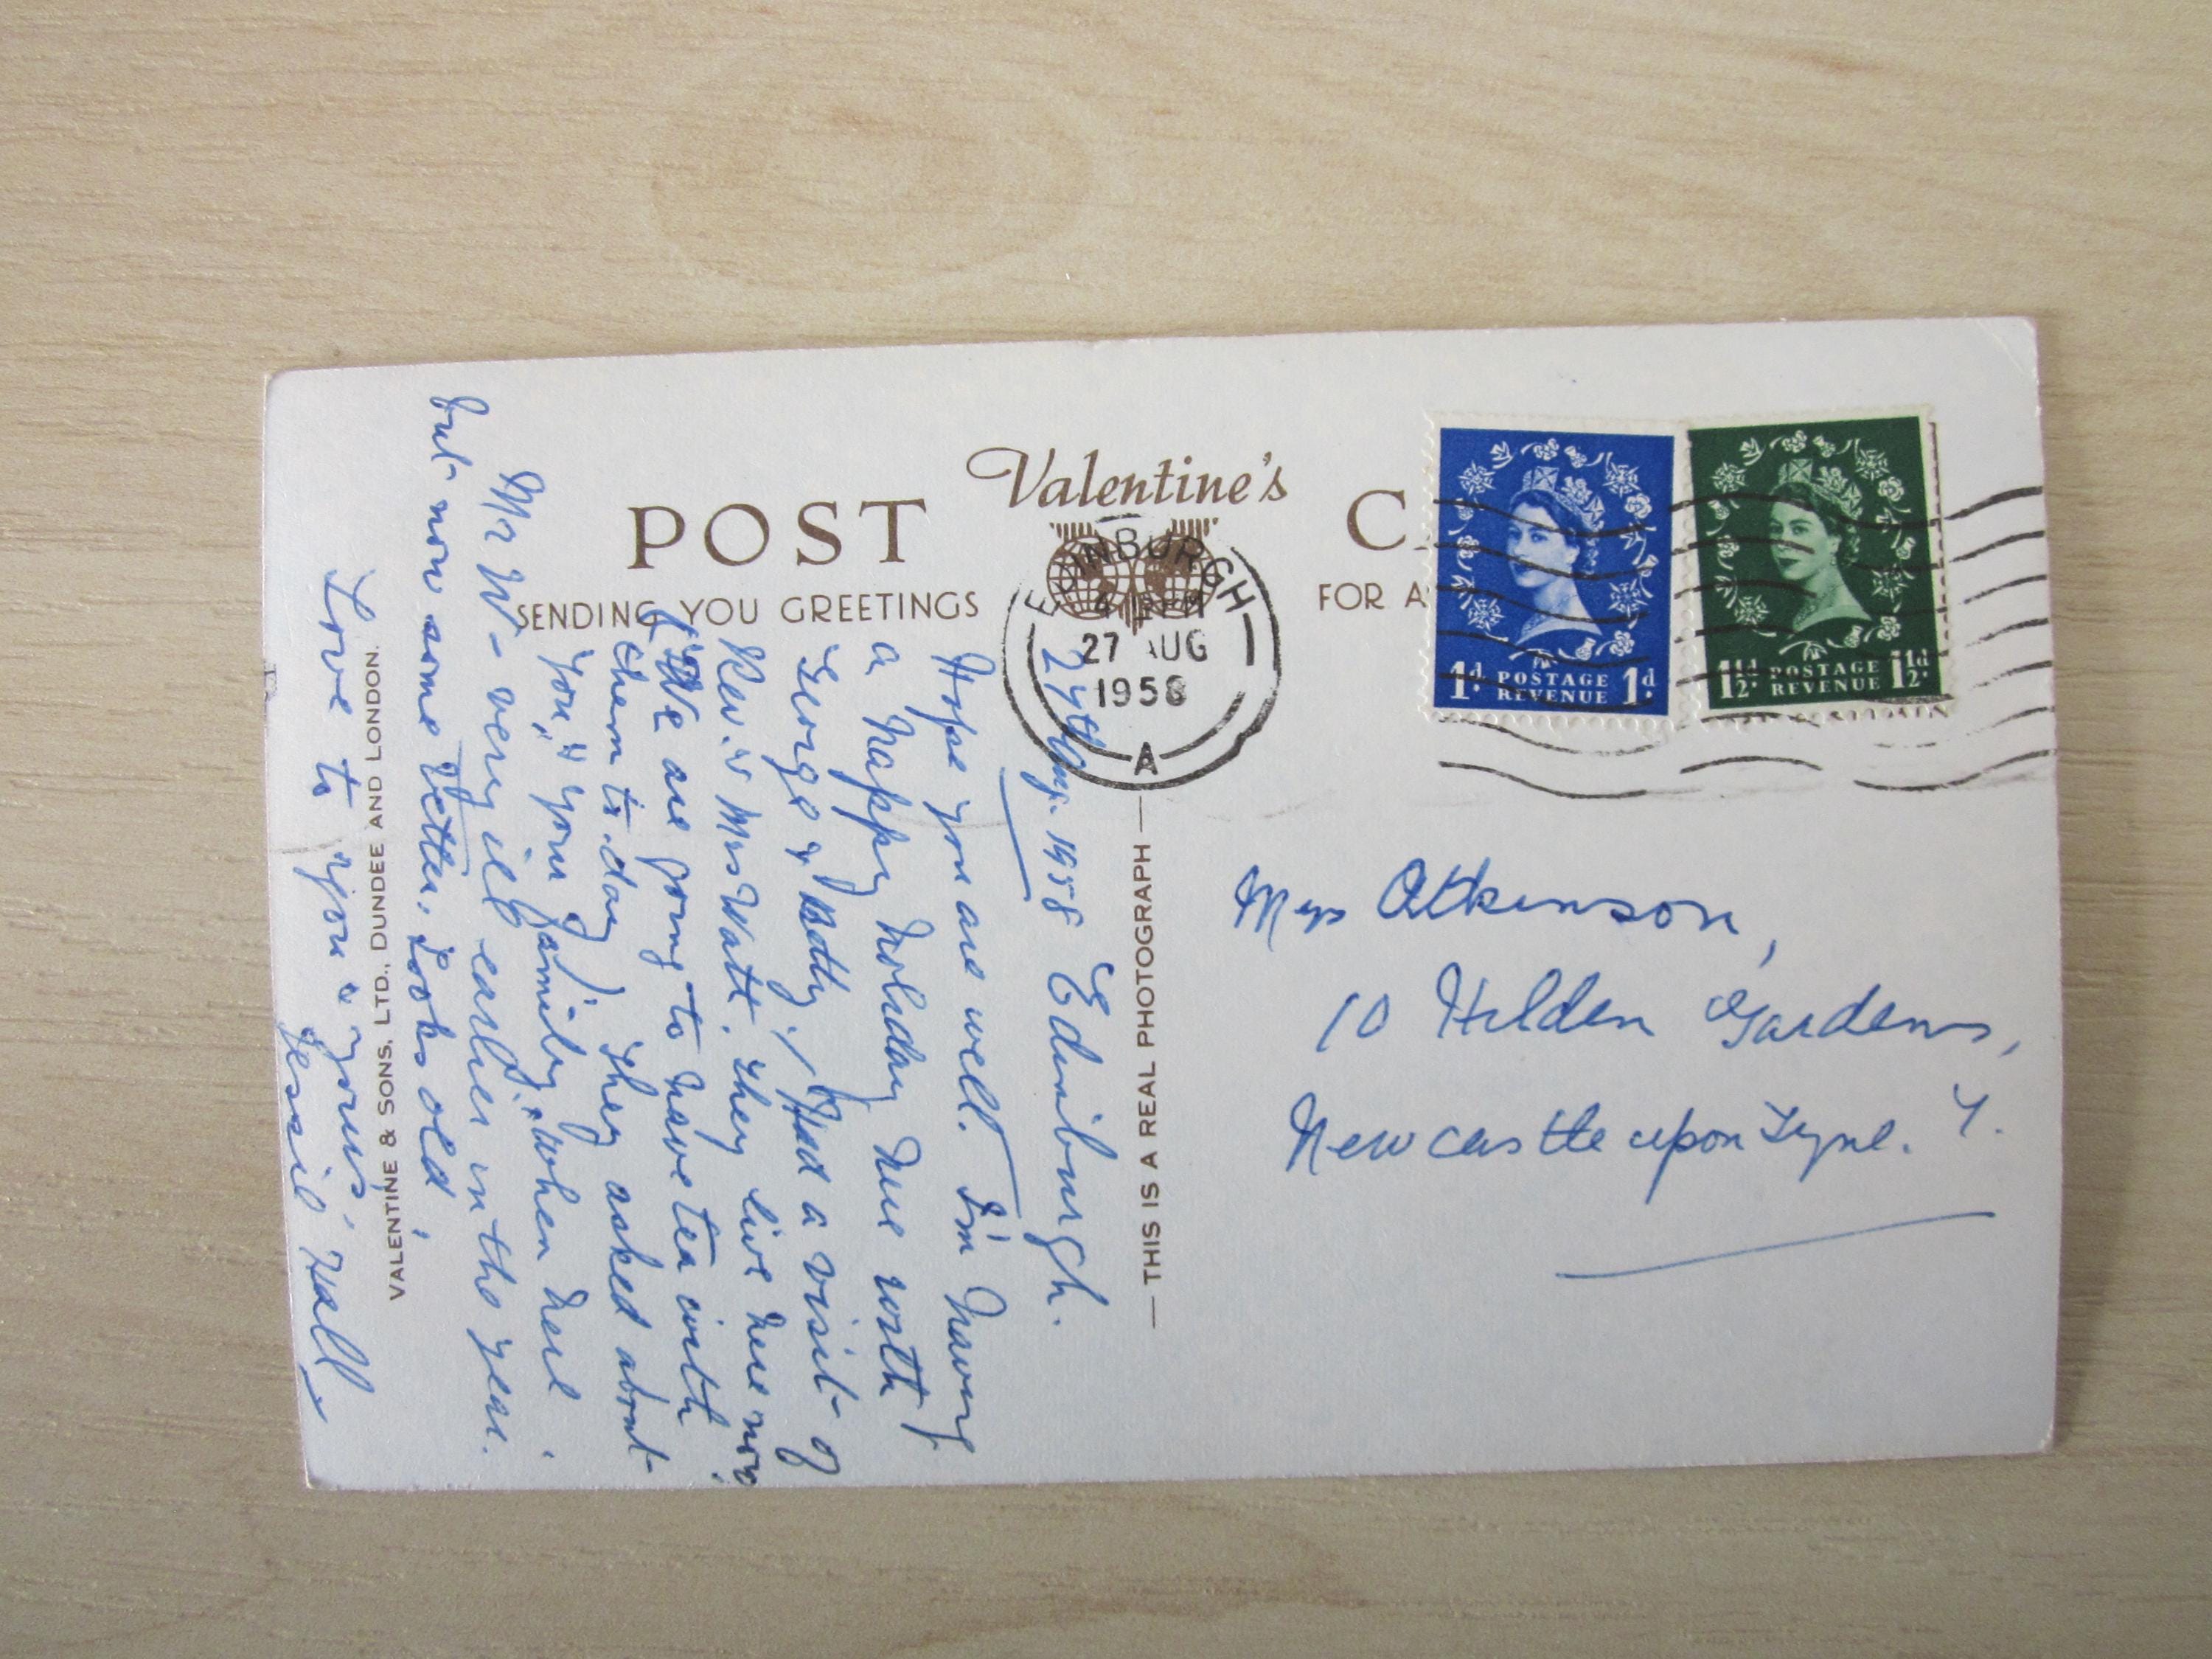 Valentine's
POST C
SENDING YOU GREETINGS
FOR A
EDINBURGH
27 AUG
1958
A
1d. POSTAGE REVENUE 1d.
1½d. POSTAGE REVENUE 1½d.
27th Aug. 1958 Edinburgh.
Hope you are well. I'm having
a happy holiday here with
George & Betty. / Had a visit of
Rev. & Mrs Watt. They live here now.
We are going to have tea with
them to-day. They asked about
you, & your family, when here.
Mr W- very ill earlier in the year.
but now some better. Looks old,
Love to you & yours
Jessie Hall
VALENTINE & SONS, LTD., DUNDEE AND LONDON.
— THIS IS A REAL PHOTOGRAPH —
Atkinson,
10 Hilden Gardens,
Newcastle upon Tyne. 7.